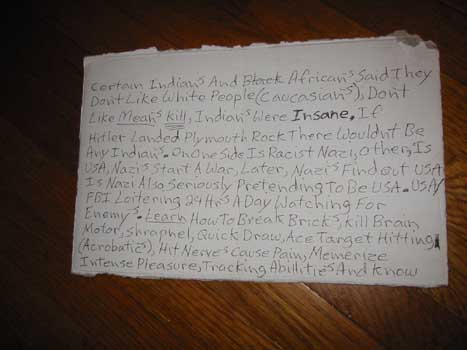 Certain Indian's And Black African's Said They
Dont Like White People (Caucasian's), Dont
Like Mean's Kill, Indian's Were Insane. If
Hitler Landed Plymouth Rock There Wouldnt Be
Any Indian's. On One Side Is Racist Nazi, Other, Is
USA, Nazi's Start A War, Later, Nazi's Find out USA
Is Nazi Also Seriously Pretending To Be USA. USA/
FBI Loitering 24 Hrs A Day Watching For
Enemy's. Learn How To Break Brick's, Kill Brain,
Motor, Shraphel, Quick Draw, Ace Target Hitting,
(Acrobatic's), Hit Nerve's Cause Pain, Memerize
Intense Pleasure, Tracking Abilitie's And Know